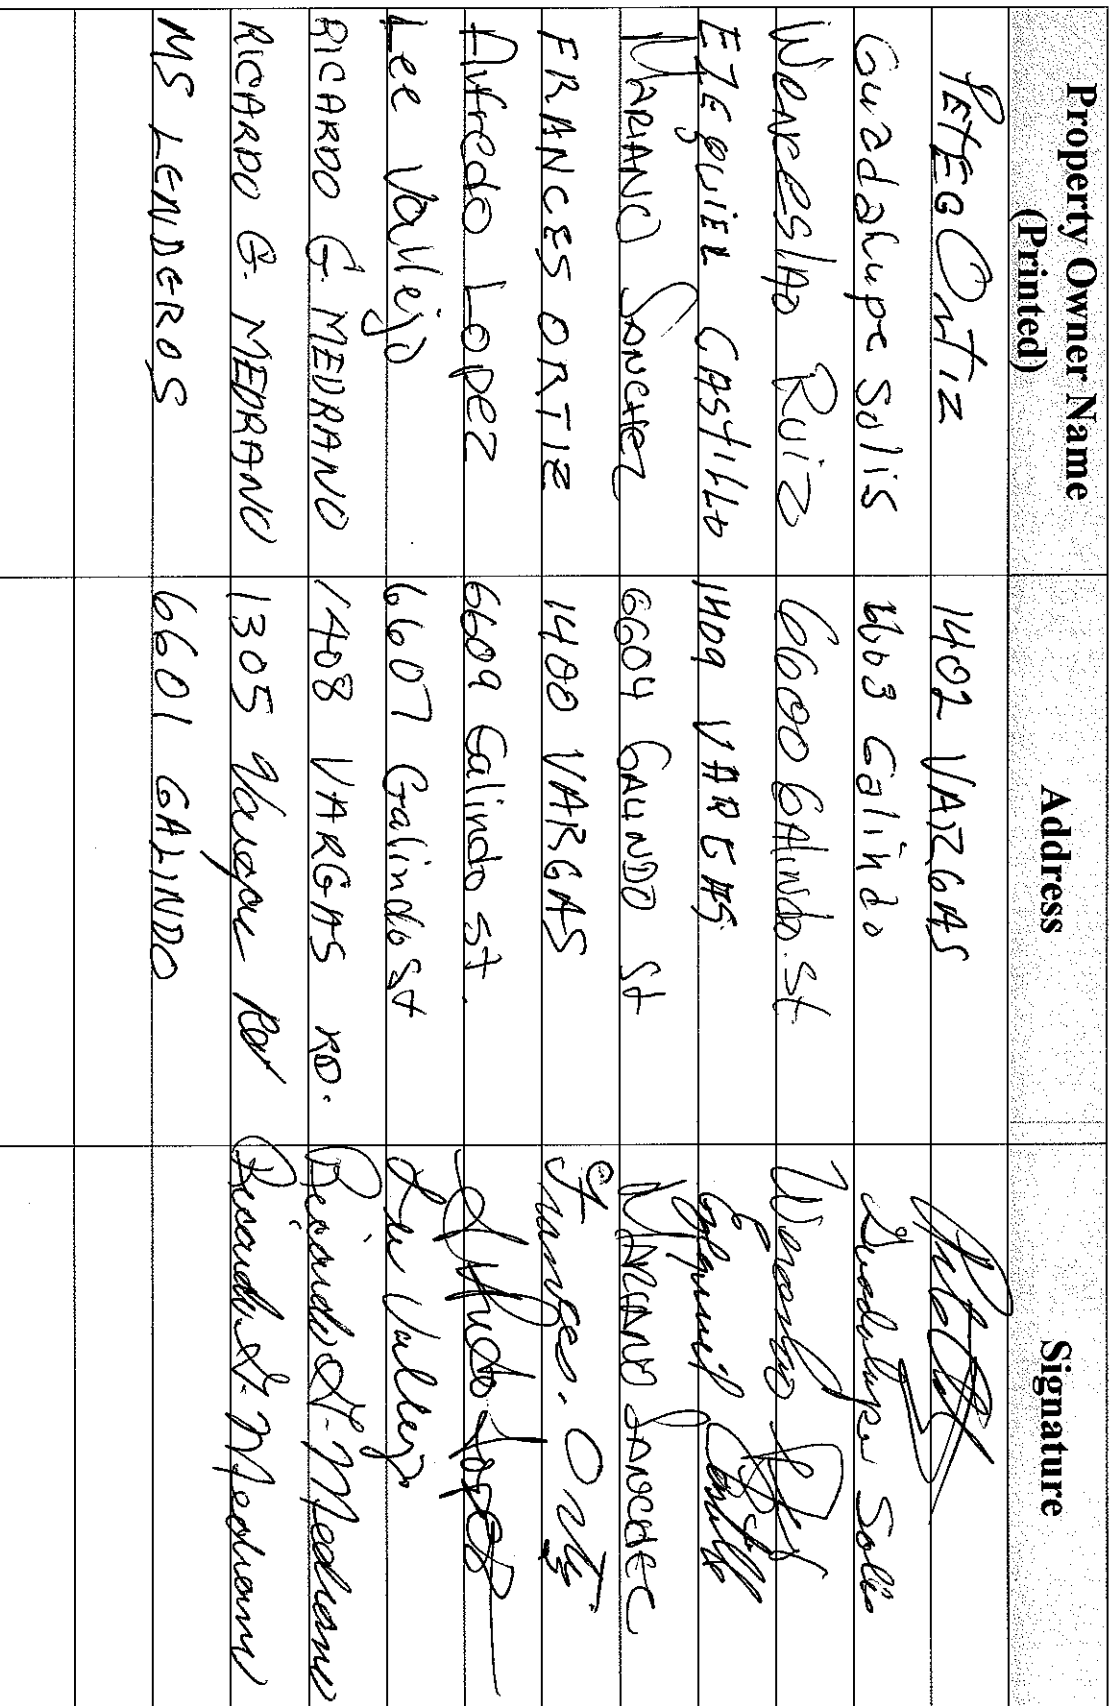 Property Owner Name (Printed) Address Signature
PETE G Ortiz 1402 VARGAS
Guadalupe Solis 6603 Galindo Guadalupe Solis
Wenceslao Ruiz 6600 GAlindo. St Wenceslao
EZEQUIEL CASTILLO 1409 VARGAS Ezequiel Castillo
MARIANO SANCHEZ 6604 GALINDO St MARIANO SANCHEZ
FRANCES ORTIZ 1400 VARGAS Frances. Ortiz
Alfredo Lopez 6609 Galindo St. Alfredo Lopez
Lee Vallejo 6607 Galindo St Lee Vallejo
RICARDO G. MEDRANO 1408 VARGAS RD. Ricardo G. Medrano
RICARDO G. MEDRANO 1305 Vargas Rd Ricardo G. Medrano
MS LENDEROS 6601 GALINDO